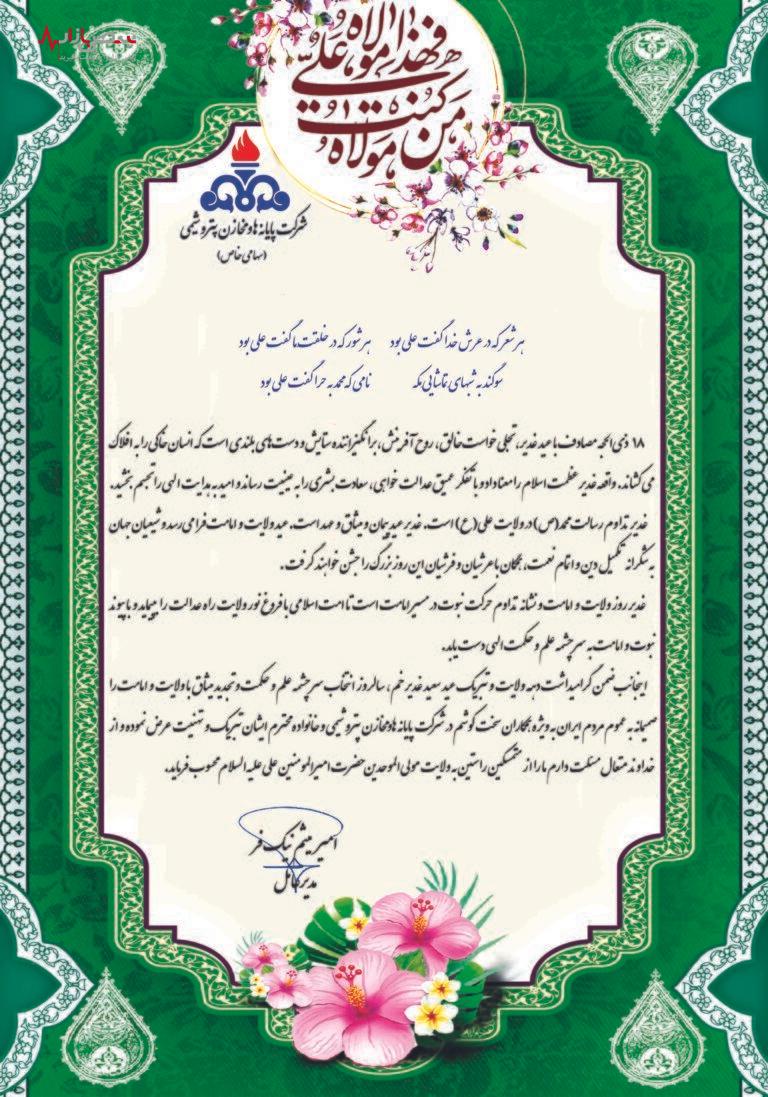 من کنت مولاه
فهذا علی مولاه
شرکت پایانه ها و مخازن پتروشیمی
(سهامی خاص)
هر شعر که در عرش خدا گفت علی بود هر شور که در خلقت ما گفت علی بود
سوگند به شبهای تماشایی مکه نامی که محمد به حرا گفت علی بود
۱۸ ذی الحجه مصادف با عید غدیر، تجلی خواست خالق، روح آفرینش، برانگیزاننده ستایش و دست های بلندی است که انسان خاکی را به افلاک
می کشاند. واقعه غدیر عظمت اسلام را معنا داد و با تفکر عمیق عدالت خواهی، سعادت بشری را به عینیت رساند و امید به هدایت الهی را تجسم بخشید.
غدیر تداوم رسالت محمد(ص) در ولایت علی(ع) است. غدیر عید پیمان و میثاق و عهد است. عید ولایت و امامت فرا می رسد و شیعیان جهان
به شکرانه تکمیل دین و اتمام نعمت، همگان با عرشیان و فرشیان این روز بزرگ را جشن خواهند گرفت.
غدیر روز ولایت و امامت و نشانه تداوم حرکت نبوت در مسیر امامت است تا امت اسلامی با فروغ نور ولایت راه عدالت را بپیماید و با پیوند
نبوت و امامت به سرچشمه علم و حکمت الهی دست یابد.
اینجانب ضمن گرامیداشت دهه ولایت و تبریک عید سعید غدیر خم، سالروز انتخاب سرچشمه علم و حکمت و تجدید میثاق با ولایت و امامت را
صمیمانه به عموم مردم ایران به ویژه همکاران سخت کوشم در شرکت پایانه ها و مخازن پتروشیمی و خانواده محترم ایشان تبریک و تهنیت عرض نموده و از
خداوند متعال مسئلت دارم ما را از متمسکین راستین به ولایت مولی الموحدین حضرت امیرالمومنین علی علیه السلام محسوب فرماید.
امیر میثم نیک فر
مدیرعامل